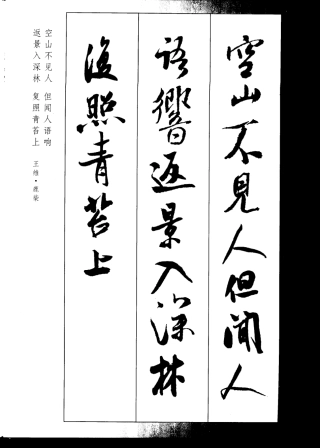 空山不見人但聞人
語響返景入深林
復照青苔上
空山不见人 但闻人语响
返景入深林 复照青苔上
王维·鹿柴